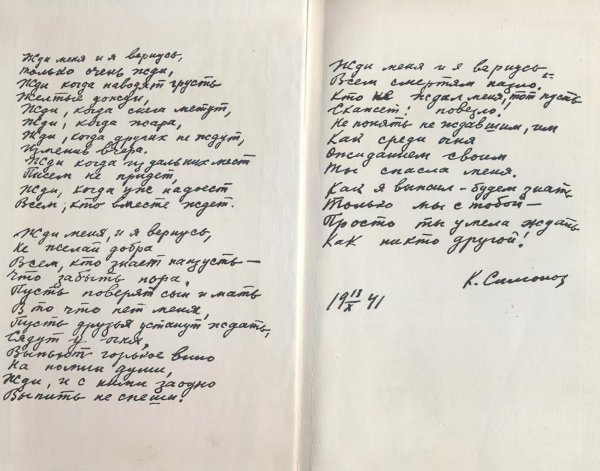 Жди меня и я вернусь,
только очень жди,
Жди когда наводят грусть
Желтые дожди,
Жди, когда снега метут,
Жди, когда жара,
Жди, когда других не ждут,
Изменив вчера.
Жди когда из дальних мест
Писем не придет,
Жди, когда уж надоест
Всем, кто вместе ждет.
Жди меня, и я вернусь,
Не желай добра
Всем, кто знает наизусть –
Что забыть пора,
Пусть поверят сын и мать
В то что нет меня,
Пусть друзья устанут ждать,
Сядут у огня,
Выпьют горькое вино
На помин души,
Жди, и с ними заодно
Выпить не спеши.
Жди меня и я вернусь –
Всем смертям назло.
Кто не ждал меня, тот пусть
Скажет: повезло!
Не понять не ждавшим, им
Как среди огня
Ожиданием своим
Ты спасла меня.
Как я выжил – будем знать
Только мы с тобой –
Просто ты умела ждать
Как никто другой!
К. Симонов
19 13/X 41